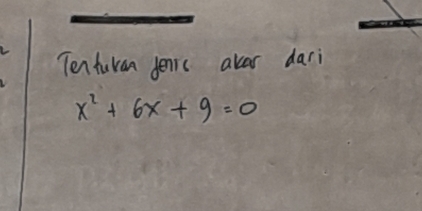 Tentukan jenis akar dari
x² + 6x + 9 = 0